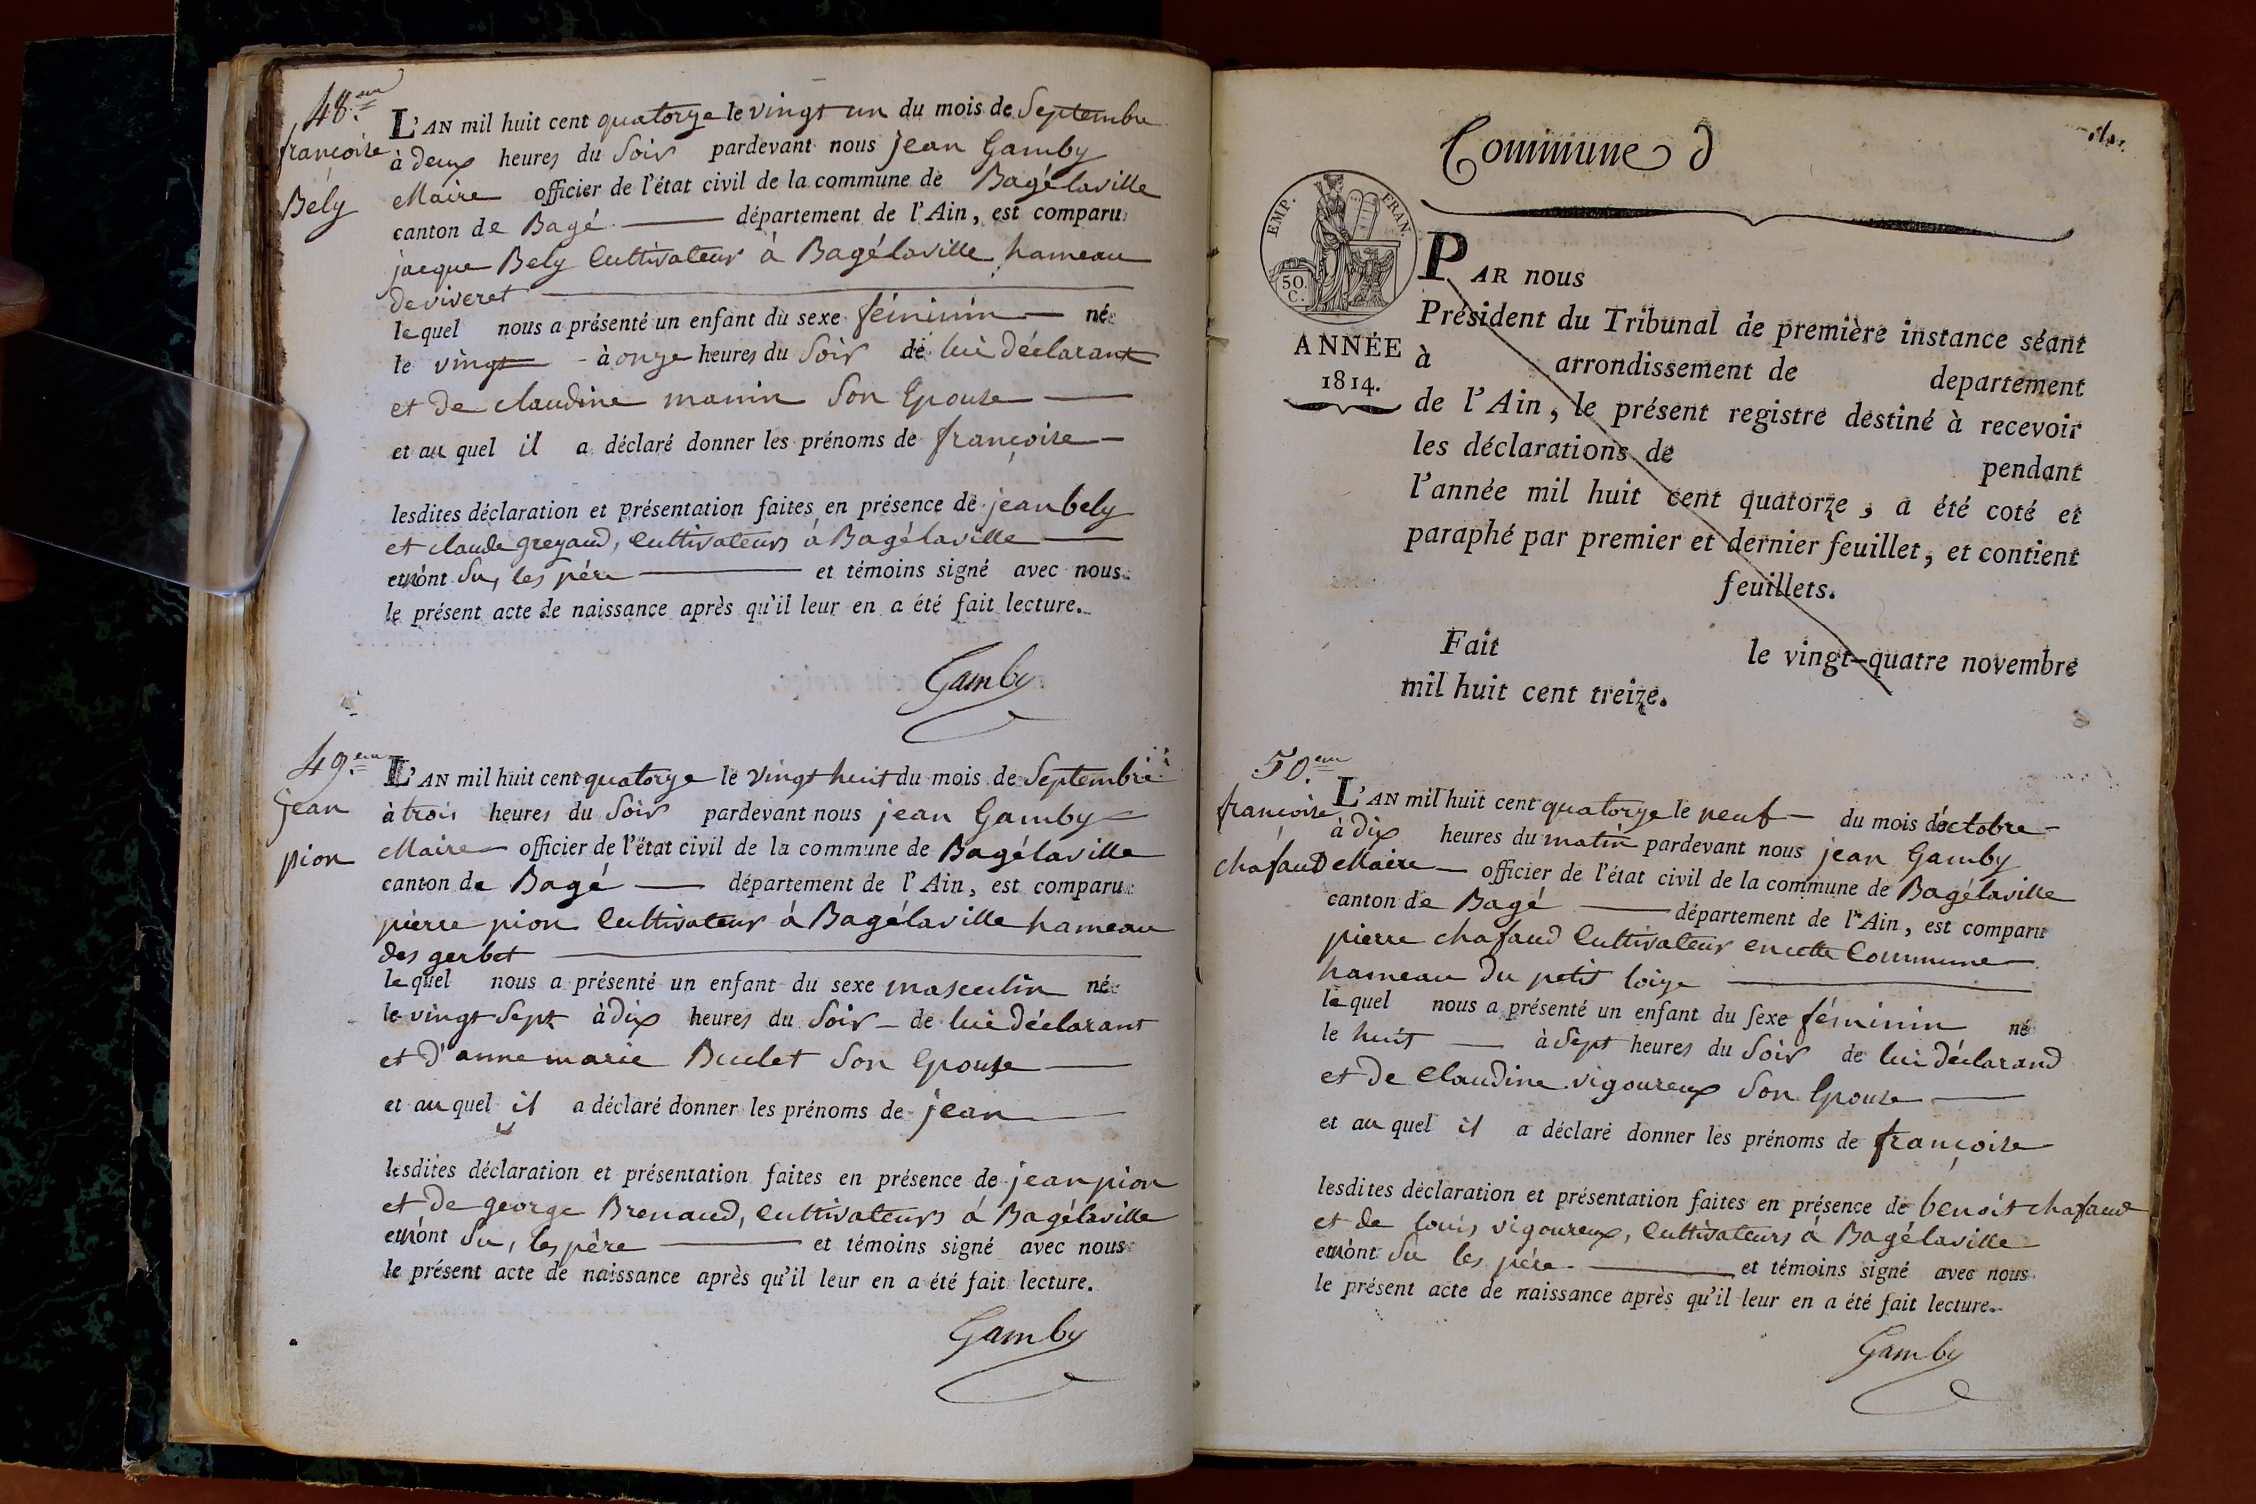 48.em
françoise
Bély
L'AN mil huit cent quatorze le vingt un du mois de Septembre
à deux heures du Soir pardevant nous jean Gamby
Maire officier de l'état civil de la commune de Bagélaville
canton de Bagé département de l'Ain, est comparu
jacque Bely Cultivateur à Bagélaville hameau
de viveret
lequel nous a présenté un enfant du sexe féminin né
le vingt à onze heures du Soir de lui déclarant
et de claudine manin Son Epouse
et au quel il a déclaré donner les prénoms de françoise
lesdites déclaration et présentation faites en présence de jean bely
et claude greyaud, Cultivateurs à Bagélaville
et n'ont Su, les père et témoins signé avec nous
le présent acte de naissance après qu'il leur en a été fait lecture.
Gamby
49.em
jean
pion
L'AN mil huit cent quatorze le vingt huit du mois de Septembre
à trois heures du Soir pardevant nous jean Gamby
Maire officier de l'état civil de la commune de Bagélaville
canton de Bagé département de l'Ain, est comparu
pierre pion Cultivateur à Bagélaville hameau
des gerbet
lequel nous a présenté un enfant du sexe masculin né
le vingt Sept à dix heures du Soir de lui déclarant
et d'anne marie Buclet Son Epouse
et au quel il a déclaré donner les prénoms de jean
lesdites déclaration et présentation faites en présence de jean pion
et de george Brenaud, Cultivateurs à Bagélaville
et n'ont Su, les père et témoins signé avec nous
le présent acte de naissance après qu'il leur en a été fait lecture.
Gamby
Commune d
EMP. FRAN.
50.
C.
ANNÉE
1814.
PAR nous
Président du Tribunal de première instance séant
à arrondissement de departement
de l'Ain, le présent registre destiné à recevoir
les déclarations de pendant
l'année mil huit cent quatorze, a été coté et
paraphé par premier et dernier feuillet, et contient
feuillets.
Fait le vingt-quatre novembre
mil huit cent treize.
50.em
françoise
chafaud
L'AN mil huit cent quatorze le neuf du mois d'octobre
à dix heures du matin pardevant nous jean Gamby
Maire officier de l'état civil de la commune de Bagélaville
canton de Bagé département de l'Ain, est comparu
pierre chafaud Cultivateur en cette Commune
hameau du petit loize
lequel nous a présenté un enfant du sexe féminin né
le huit à Sept heures du Soir de lui déclarand
et de Claudine vigoureux Son Epouse
et au quel il a déclaré donner les prénoms de françoise
lesdites déclaration et présentation faites en présence de benoit chafaud
et de louis vigoureux, Cultivateurs à Bagélaville
et n'ont Su les père et témoins signé avec nous
le présent acte de naissance après qu'il leur en a été fait lecture.
Gamby